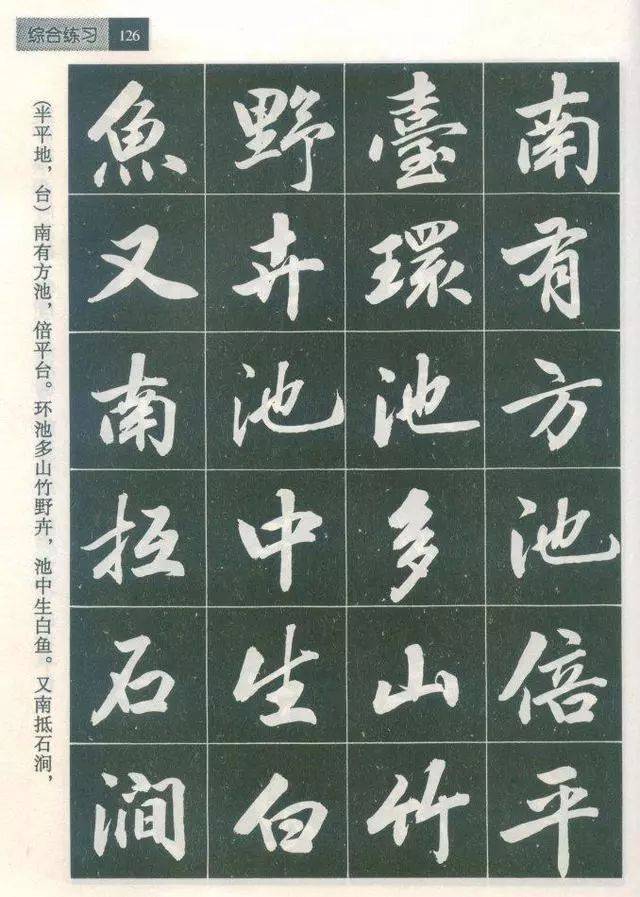 综合练习 126
南有方池倍平
臺環池多山竹
野卉池中生白
魚又南抵石澗
(半平地，台) 南有方池，倍平台。环池多山竹野卉，池中生白鱼。又南抵石涧，